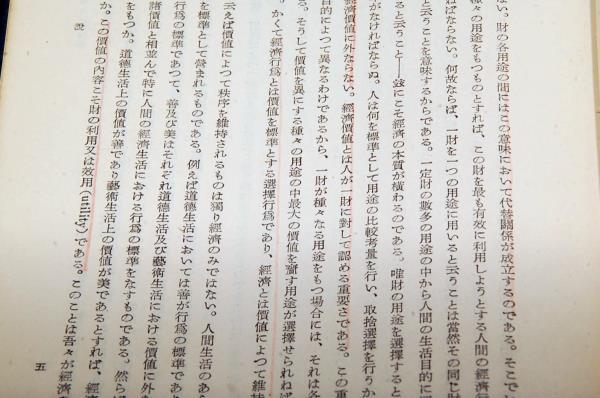 ない。財の各用途の間にはこの意味において代替關係が成立するのである。そこで
種々の用途をもつものとすれば、この財を最も有效に利用しようとする人間の經濟行
ねばならない。何故ならば、一財を一つの用途に用いると云うことは當然その同じ財
と云うことを意味するからである。一定財の數多の用途の中から人間の生活目的に
ると云うこと──玆にこそ經濟の本質が橫わるのである。唯財の用途を選擇すると
がなければならぬ。人は何を標準として用途の比較考量を行い、取捨選擇を行うか
經濟價値に外ならない。經濟價値とは人が一財に對して認める重要さである。この重
目的によつて異なるわけであるから、一財が種々なる用途をもつ場合には、それは各
る。そうして價値を異にする種々の用途の中最大の價値を齎す用途が選擇せられねば
。かくて經濟行爲とは價値を標準とする選擇行爲であり、經濟とは價値によつて維持
云えば價値によつて秩序を維持されるものは獨り經濟のみではない。人間生活のあ
を標準として營まれるものである。例えば道德生活においては善が行爲の標準であり
行爲の標準であつて、善及び美はそれぞれ道德生活及び藝術生活における價値に外な
諸價値と相並んで特に人間の經濟生活における行爲の標準をなすものである。然ら
をもつか。道德生活上の價値が善であり藝術生活上の價値が美であるとすれば、經
か。この價値の內容こそ財の利用又は效用(utility)である。このことは吾々が經濟
說
五